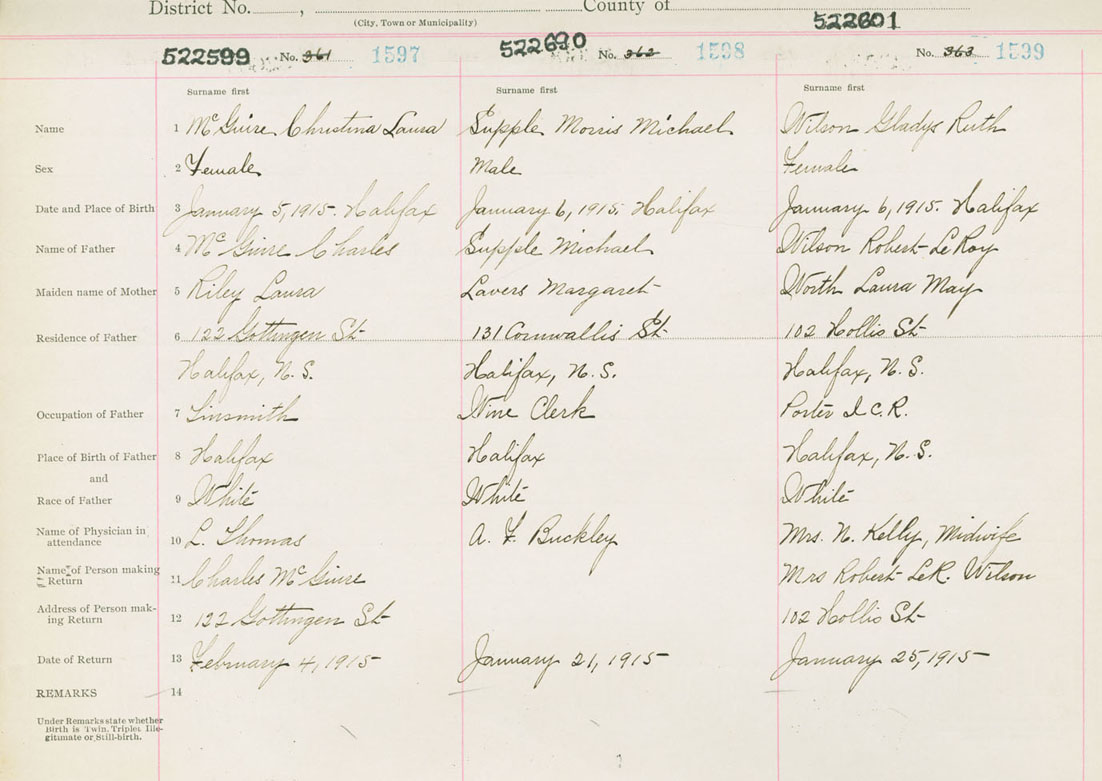 District No. , County of
(City, Town or Municipality)
522601
522599 No. 361 1597 522600 No. 362 1598 No. 363 1599
Surname first Surname first Surname first
Name 1 McGuire Christina Laura Supple Morris Michael Wilson Gladys Ruth
Sex 2 Female Male Female
Date and Place of Birth 3 January 5, 1915. Halifax January 6, 1915. Halifax January 6, 1915. Halifax
Name of Father 4 McGuire Charles Supple Michael Wilson Robert LeRoy
Maiden name of Mother 5 Riley Laura Lavers Margaret Worth Laura May
Residence of Father 6 122 Gottingen St 131 Cornwallis St 102 Hollis St
Halifax, N.S. Halifax, N.S. Halifax, N.S.
Occupation of Father 7 Tinsmith Wine Clerk Porter I.C.R.
Place of Birth of Father 8 Halifax Halifax Halifax, N.S.
and
Race of Father 9 White White White
Name of Physician in
attendance 10 L. Thomas A. F. Buckley Mrs. N. Kelly, Midwife
Name of Person making
Return 11 Charles McGuire Mrs Robert LeR. Wilson
Address of Person mak-
ing Return 12 122 Gottingen St 102 Hollis St
Date of Return 13 February 4, 1915 January 21, 1915 January 25, 1915
REMARKS 14
Under Remarks state whether
Birth is Twin, Triplet, Ille-
gitimate or Still-birth.